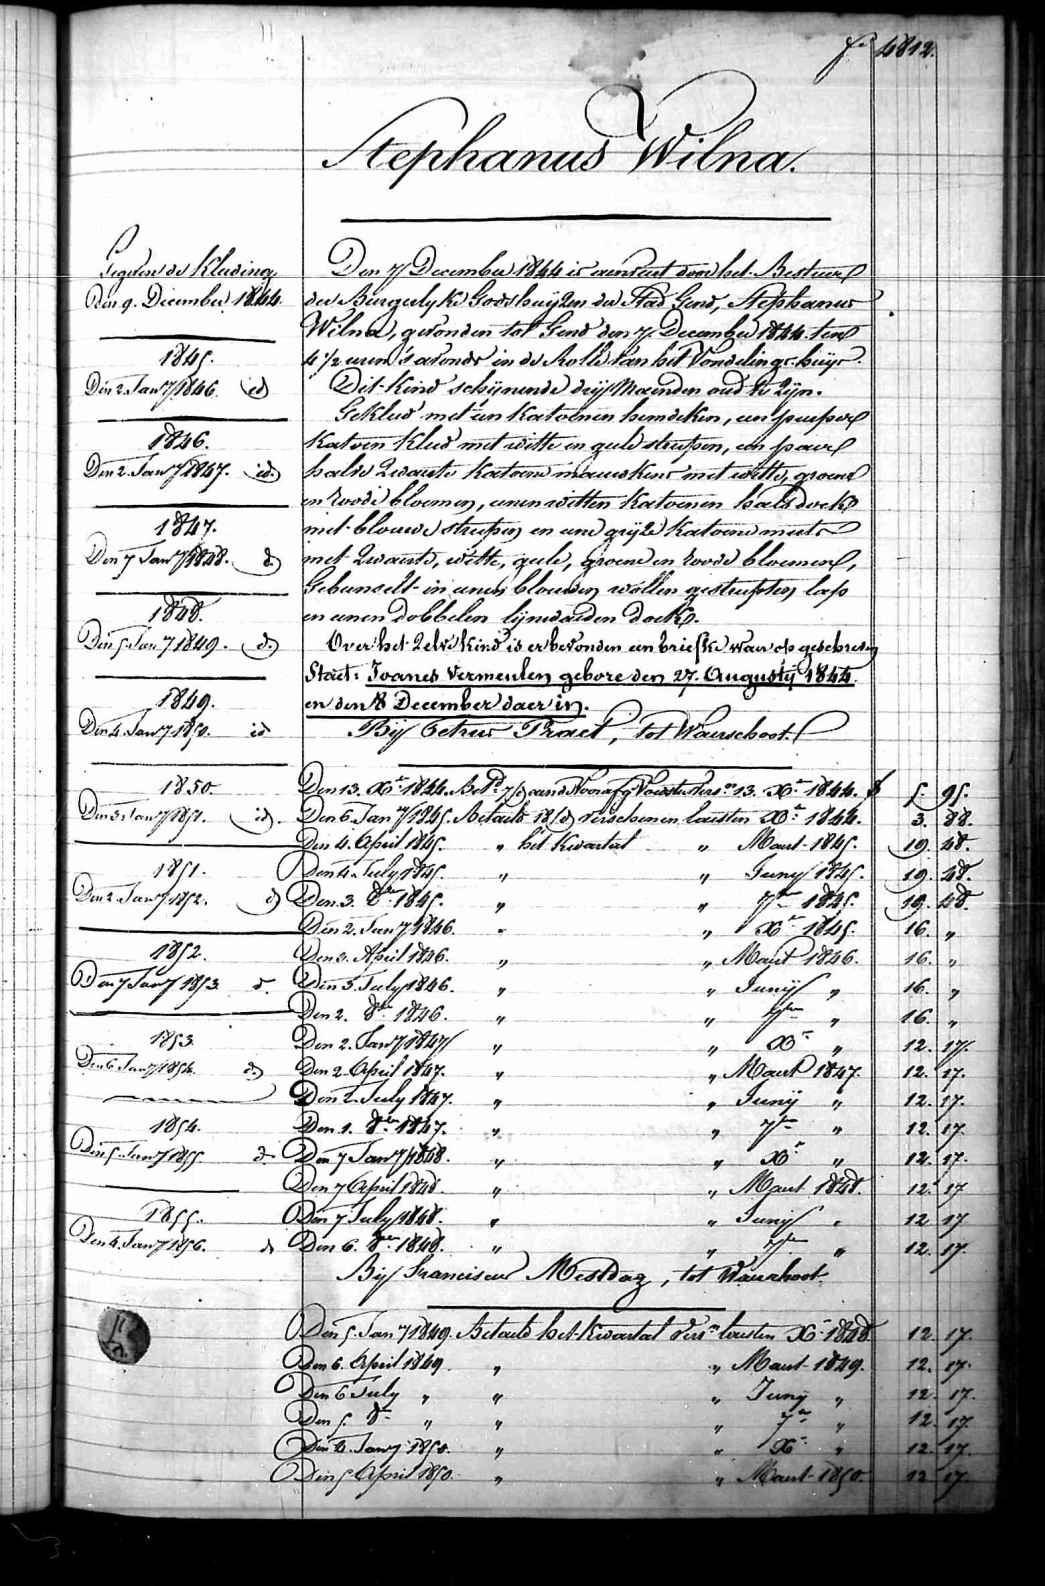 fo 4812.
Stephanus Wilna.
Gegeven de Kleeding
Den 9. December 1844.
1845.
Den 2. Jany 1846. id
1846.
Den 2. Jany 1847. id.
1847.
Den 7 Jany 1848. d.
1848.
Den 5 Jany 1849. d.
1849.
Den 4. Jany 1850. id
1850.
Den 3 Jany 1851. id.
1851.
Den 2 Jany 1852. d
1852.
Den 7 Jany 1853. d.
1853.
Den 6 Jany 1854. d
1854.
Den 5 Jany 1855. d
1855.
Den 4. Jany 1856. d
Den 7 December 1844 is aenveert door het Bestuur
der Burgerlyke Godshuyzen der Stad Gend, Stephanus
Wilna, gevonden tot Gend den 7 December 1844 ten
4 1/2 uren 's avonds in de Rolle van het Vondelings-huys.
Dit kind schynende dry Maenden oud te zyn.
Gekleed met een katoenen hemdeken, een purper
katoen kleed met witte en gele strepen, een paer
halve zwarte katoene mauwkens met witte, groene
en roode bloemen, eenen witten katoenen halsdoek
met blauwe strepen en eene gryze katoene muts
met zwarte, witte, gele, groene en roode bloemen,
Gebunselt in eenen blauwen wollen gestreepten lap
en eenen dobbelen lynwaeden doek.
Over het zelve kind is er bevonden een briefke waer op geschreven
Staet: Joanes Vermeulen gebore den 27. Augustÿ 1844
en den 8 December daer in.
By Petrus Praet, tot Waerschoot.
Den 13. Xr 1844. Bet. 7/d aend Voorafg Voedster vers. 13. Xr 1844. f 5. 95.
Den 6 Jany 1845. Betaelt 18/d verschenen laesten Xr 1844. 3. 88.
Den 4. April 1845. " het kwartal " Maert 1845. 19. 48.
Den 4 July 1845. " " Juny 1845. 19. 48.
Den 3. 8er 1845. " " 7er 1845. 19. 48.
Den 2. Jany 1846. " " Xr 1845. 16. "
Den 3. April 1846. " " Maert 1846. 16. "
Den 3. July 1846. " " Juny " 16. "
Den 2. 8er 1846. " " 7er " 16. "
Den 2. Jany 1847 " " Xr " 12. 17.
Den 2. April 1847. " " Maert 1847. 12. 17.
Den 2. July 1847. " " Juny " 12. 17.
Den 1. 8er 1847. " " 7er " 12. 17.
Den 7 Jany 1848. " " Xr " 12. 17.
Den 7 April 1848. " " Maert 1848. 12. 17
Den 7 July 1848. " " Juny " 12 17
Den 6. 8er 1848. " " 7er " 12. 17.
By Franciscus Mestdag, tot Waerschoot.
Den 5. Jany 1849. Betaelt het kwartal vers. laesten Xr 1848. 12. 17.
Den 6. April 1849 " " Maert 1849. 12. 17.
Den 6 July " " " Juny " 12. 17.
Den 5. 8r " " " 7er " 12. 17.
Den 4. Jany 1850. " " Xr " 12. 17.
Den 5 April 1850. " " Maert 1850. 12 17.